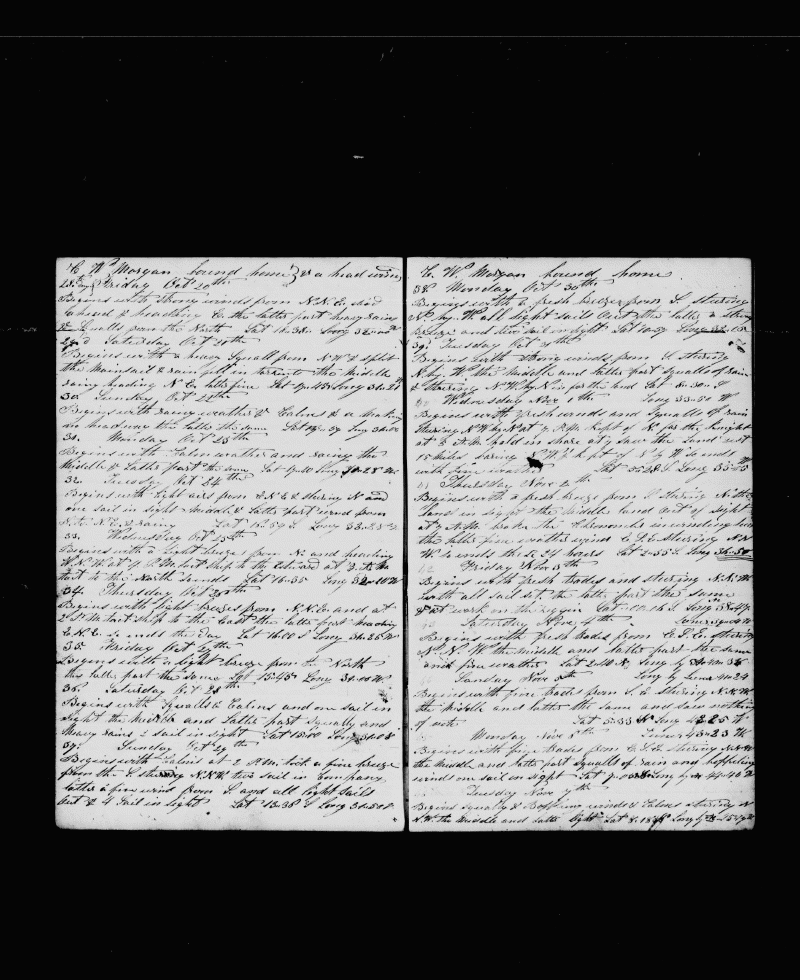 C W Morgan bound home & a head wind
28th day Friday Oct 20th
Begins with Strong winds from N.N.E. and
ahead & heading E. the latter part heavy rain
& Squalls from the North Lat 18-38 Long 32
29 Saturday Oct 21st
Begins with a heavy Squall from N.W. & split
the Mainsail & rain fell in torrents the Middle
rainy heading N E latter fine Long 31-21
30 Sunday Oct 22th
Begins with rainy weather & Calms &
no headway the latter the same Long 31
31. Monday Oct 23th
Begins with Calm weather and rainy the
Middle & Latter part the same
32. Tuesday Oct 24th
Begins with light airs from E.N.E & steering N and
one sail in sight Middle & Latter part wind from
N.N.E. & rainy Lat 16-59 S Long 33
33. Wednesday Oct 25th
Begins with a light breeze from N. and heading
W.N.W. at 7 P.M. tact ship to the Eastward at A.M.
tact to the North So ends Lat 16-35 Long 32-10 W
34. Thursday Oct 26th
Begins with light breezes from N.N.E. and at
2 P.M. tact ship to the East the latter part heading
E.N.E. So ends the day Lat 16-00 S Long 31-25 W
35 Friday Oct 27th
Begins with a light breeze from the North
the latter part the same Lat 15-45 Long 31-10 W
36. Saturday Oct 28th
Begins with Squalls & Calms and one sail in
sight the Middle and Latter part Squally and
Heavy rains 2 sail in sight Lat 15-00 Long 31-08
37. Sunday Oct 29
Begins with Calms at 2 P.M. took a fine breeze
from the S steering N.N.W. two sail in Company
latter a fine wind from S and all light Sails
out & 4 Sail in sight Lat 13-38 S Long 31-50 W
C. W. Morgan bound home
38. Monday Oct 30th
Begins with a fresh breeze from S. steering
N. by. W. all light sails Out the latter a strong
Breeze and two sail in sight Lat 10-57 Long
39. Tuesday Oct 31st
Begins with strong winds from S. steering
N. by. W. the Middle and Latter part squalls of rain
& steering N.W. by N. for the land Lat 8-30 S
Wednesday Nov 1th Long 33-50 W
Begins with fresh winds and Squalls of rain
steering N.W. by N at 7 P.M. Kept of N. for the knight
at A.M. hald in shore at 7 saw the Land West
15 miles bearing N.W. & kept of N. by W So ends
with fine weather Lat 5-28 S Long 35-05 W
41 Thursday Nov 2th
Begins with a fresh breeze from S steering N. the
Land in sight the Middle land out of sight
at 7 A.M. broke the
the latter fine weather wind E.S.E. steering N.N.
W. So ends the 24 hours Lat 2-55 S. Long 36-50
42 Friday Nov 3th
Begins with fresh trades and steering N.N.W.
with all sail set the latter part the same
& at work on the rigging Lat 00-16 S Long 38-47
43 Saturday Nov. 4th
Begins with fresh trades from E.S.E. steering
N. N. W. the middle and latter part the same
and fine weather Lat 2-40 N. Long by
Sunday Nov 5th
Begins with fine trades from S. E steering N.N.W.
the middle and latter the same and saw nothing
of note Lat 5-33 N Long 42 25 W
Monday Nov 6th
Begins with fine trades from E.S.E. steering N.N.W.
the middle and latter part squalls of rain and baffeling
wind one sail in sight Lat 7-00 N Long by 44-40 W
Tuesday Nov 7th
Begins squally & Baffling winds & Calms steering N
N.W. the middle and Latter light Lat 8-18 N Long by